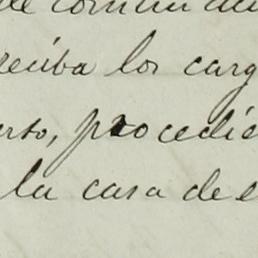 de comun
reciba los carg
erso, procedie
la casa de e